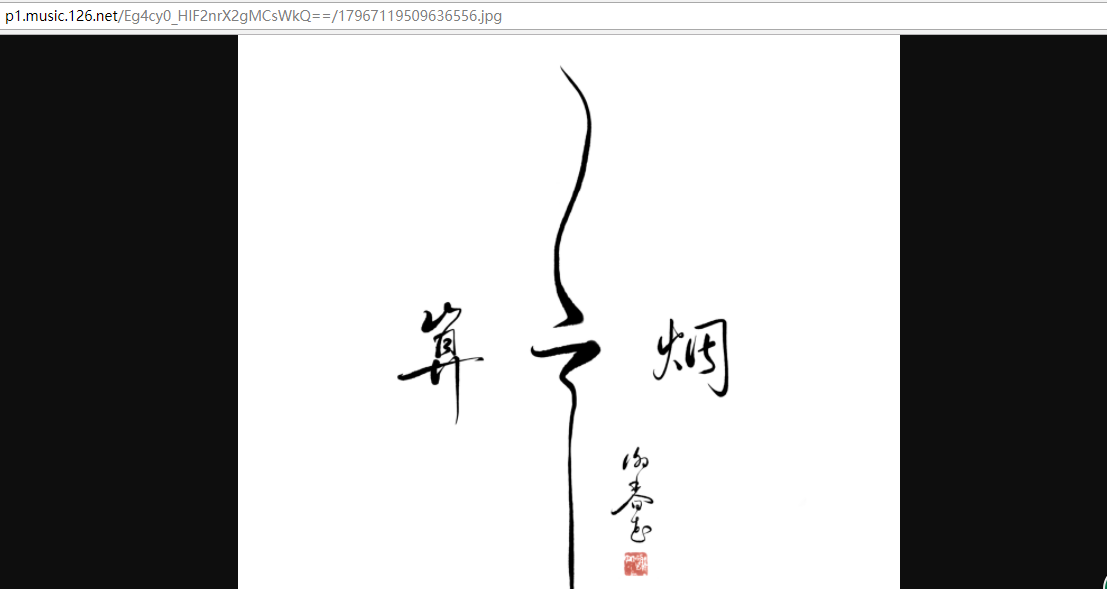 p1.music.126.net/Eg4cy0_HIF2nrX2gMCsWkQ==/17967119509636556.jpg
算云烟
谢春花